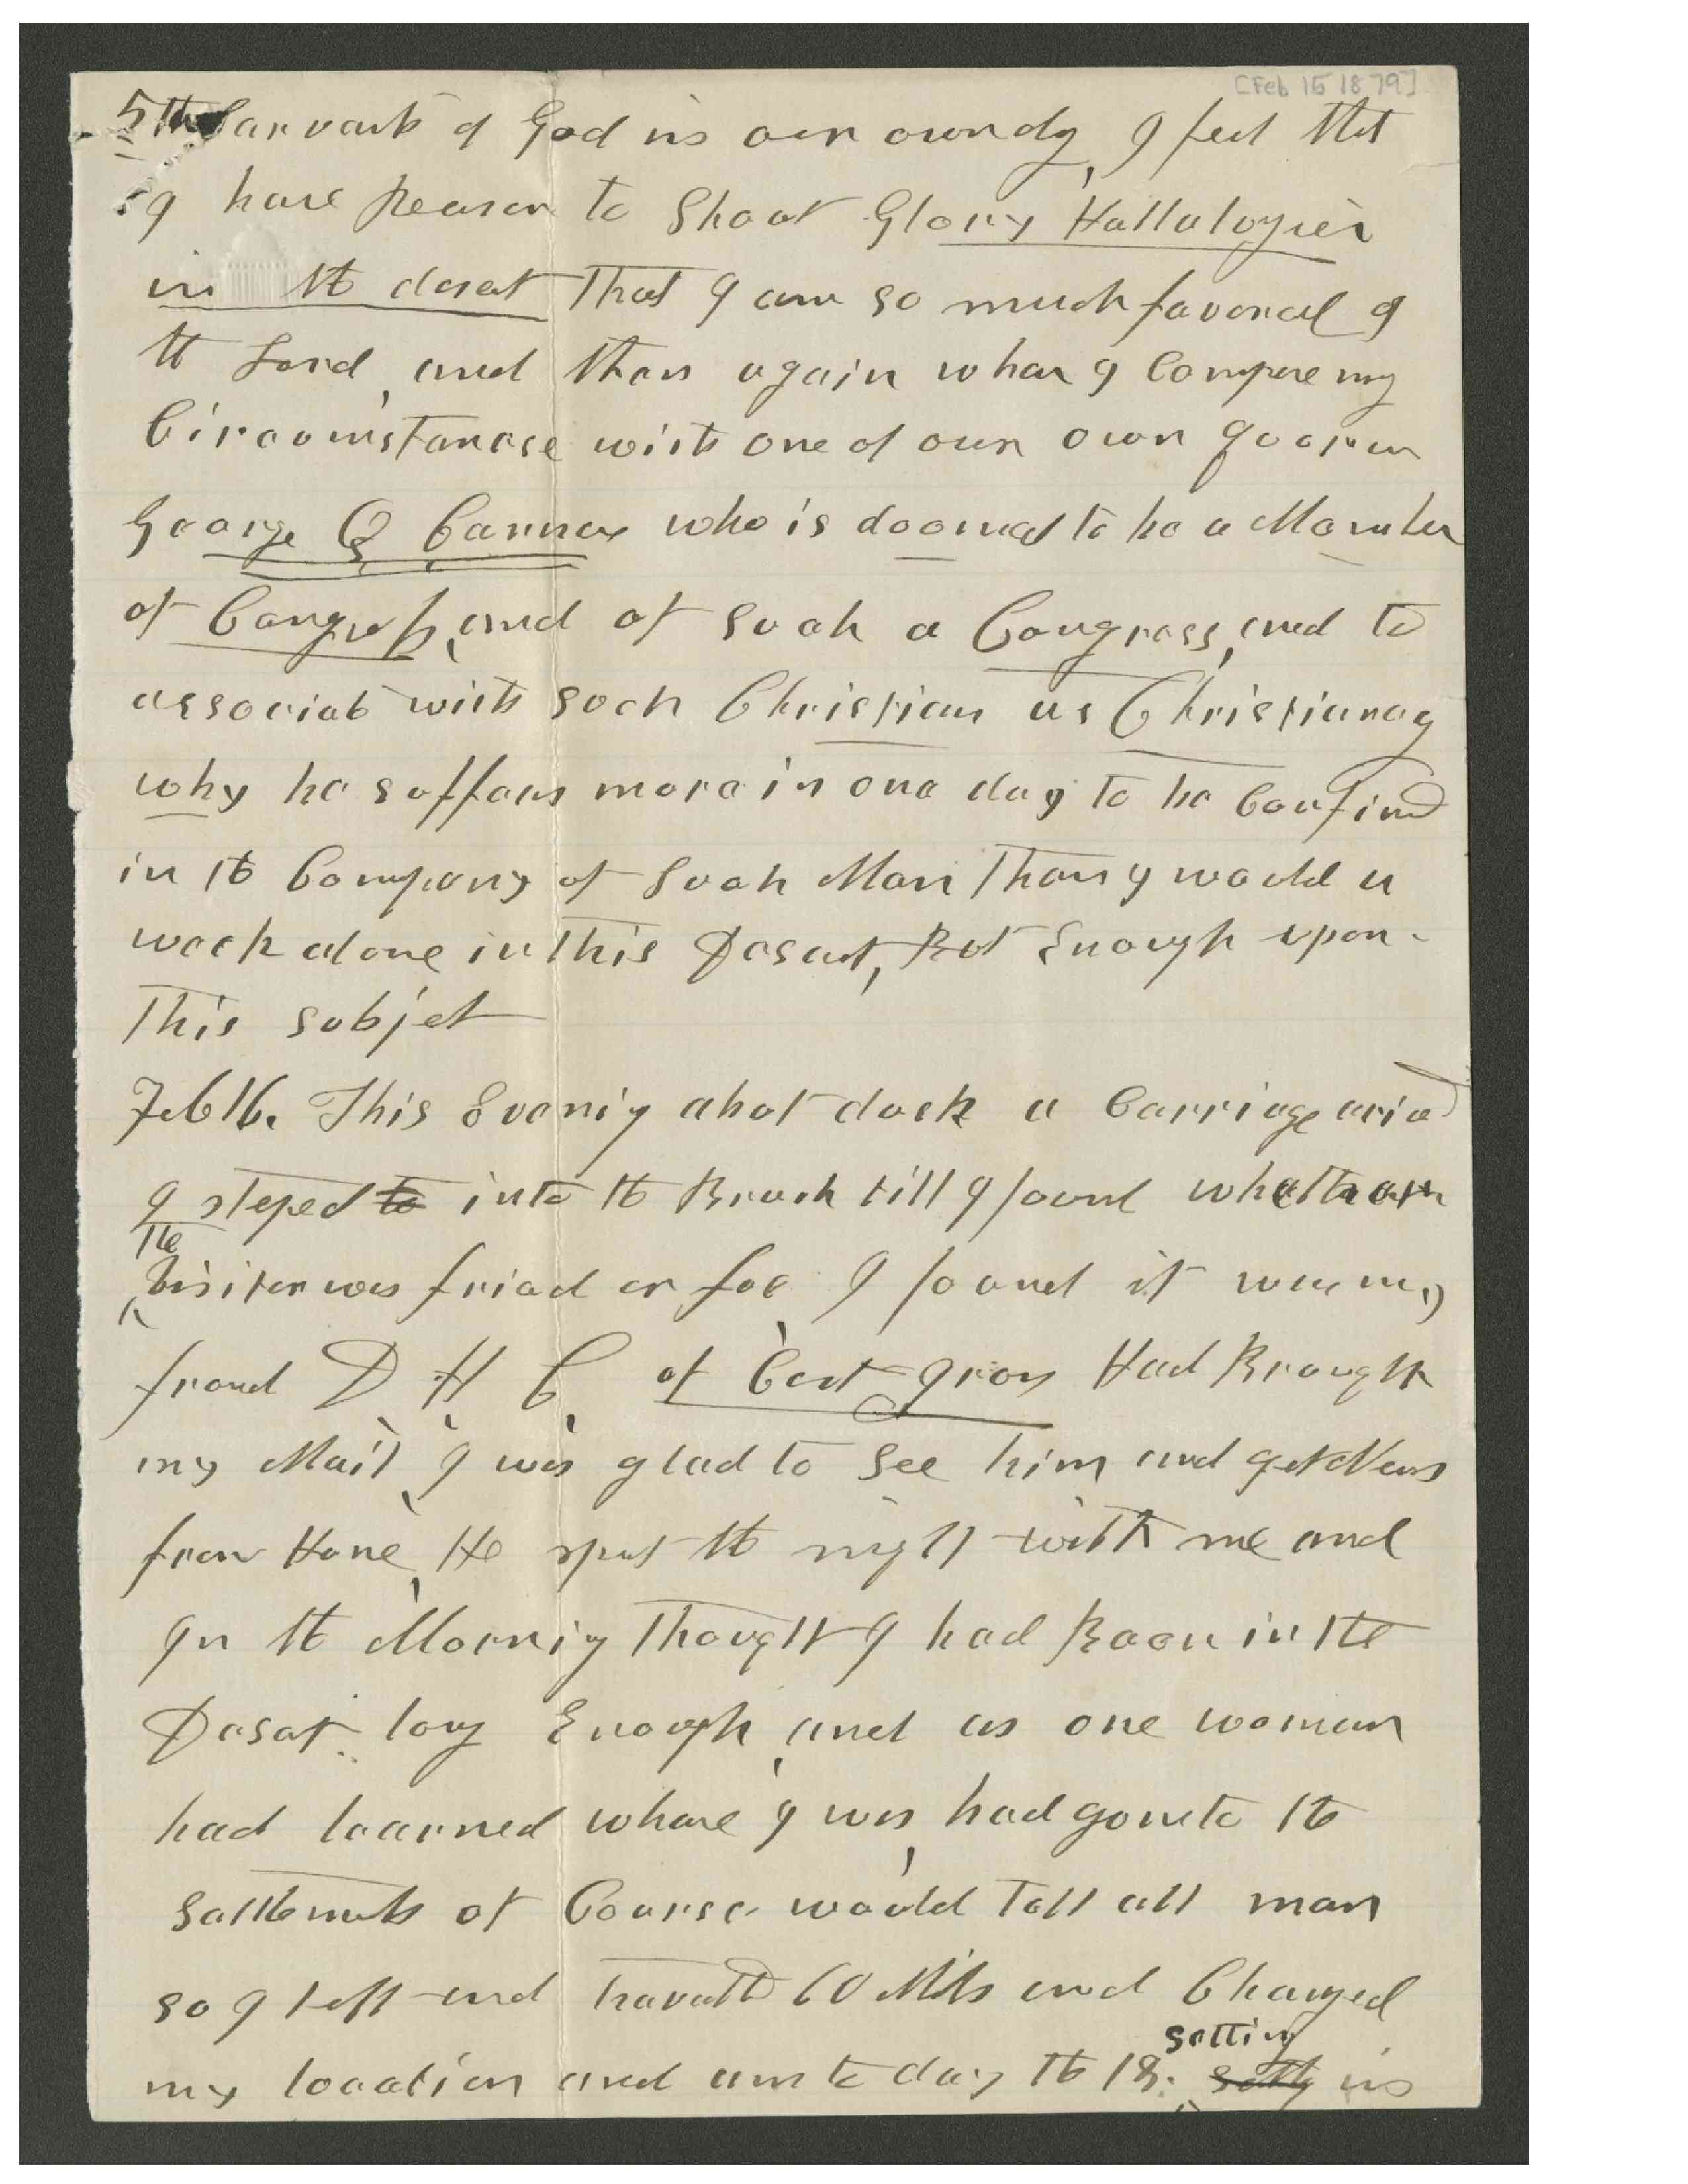 [Feb 15 1879]
5th Sarvants of God in our own day, I feel that
I have Reason to Shout Glory Hallalogies
in the desert That I am so much favored of
the Lord, and then again when I Compare my
Circumstances with one of our own quorum
George Q Cannon who is doomed to be a Member
of Congress, and of such a Congress, and to
associate with such Christian as Christiancy
why he suffers more in one day to be Confined
in the Company of Such Men Than I would a
week alone in this Desert, But Enough upon
This subjet
Feb 16. This Evenig about dusk a Carriage arived
I steped to into the Brush till I found whether
the
visiter was friend or foe, I found it was my
friend D, H, C, of Cast Iron Had Brought
my Mail, I was glad to See him and get News
from Home, He spent the night with me and
In the Mornig Thought I had Been in the
Desert long Enough, and as one woman
had learned whare I was, had gone to the
Settlements of Course would Tell all men
so I left and traveled 60 Mils and Changed
setting
my location and am to day the 18. setty in